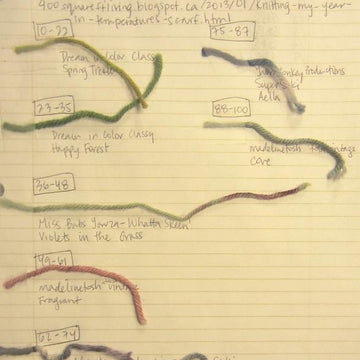 400squareftliving.blogspot.ca/2013/01/knitting-my-year-
in-temperatures-scarf.html
10-22
Dream in Color Classy
Spring Tree
23-35
Dream in Color Classy
Happy Forest
36-48
Miss Babs Yowza-Whatta Skein
Violets in the Grass
49-61
madelinetosh vintage
Fragrant
62-74
75-87
Productions
Super
Aella
88-100
madelinetosh vintage
Cove